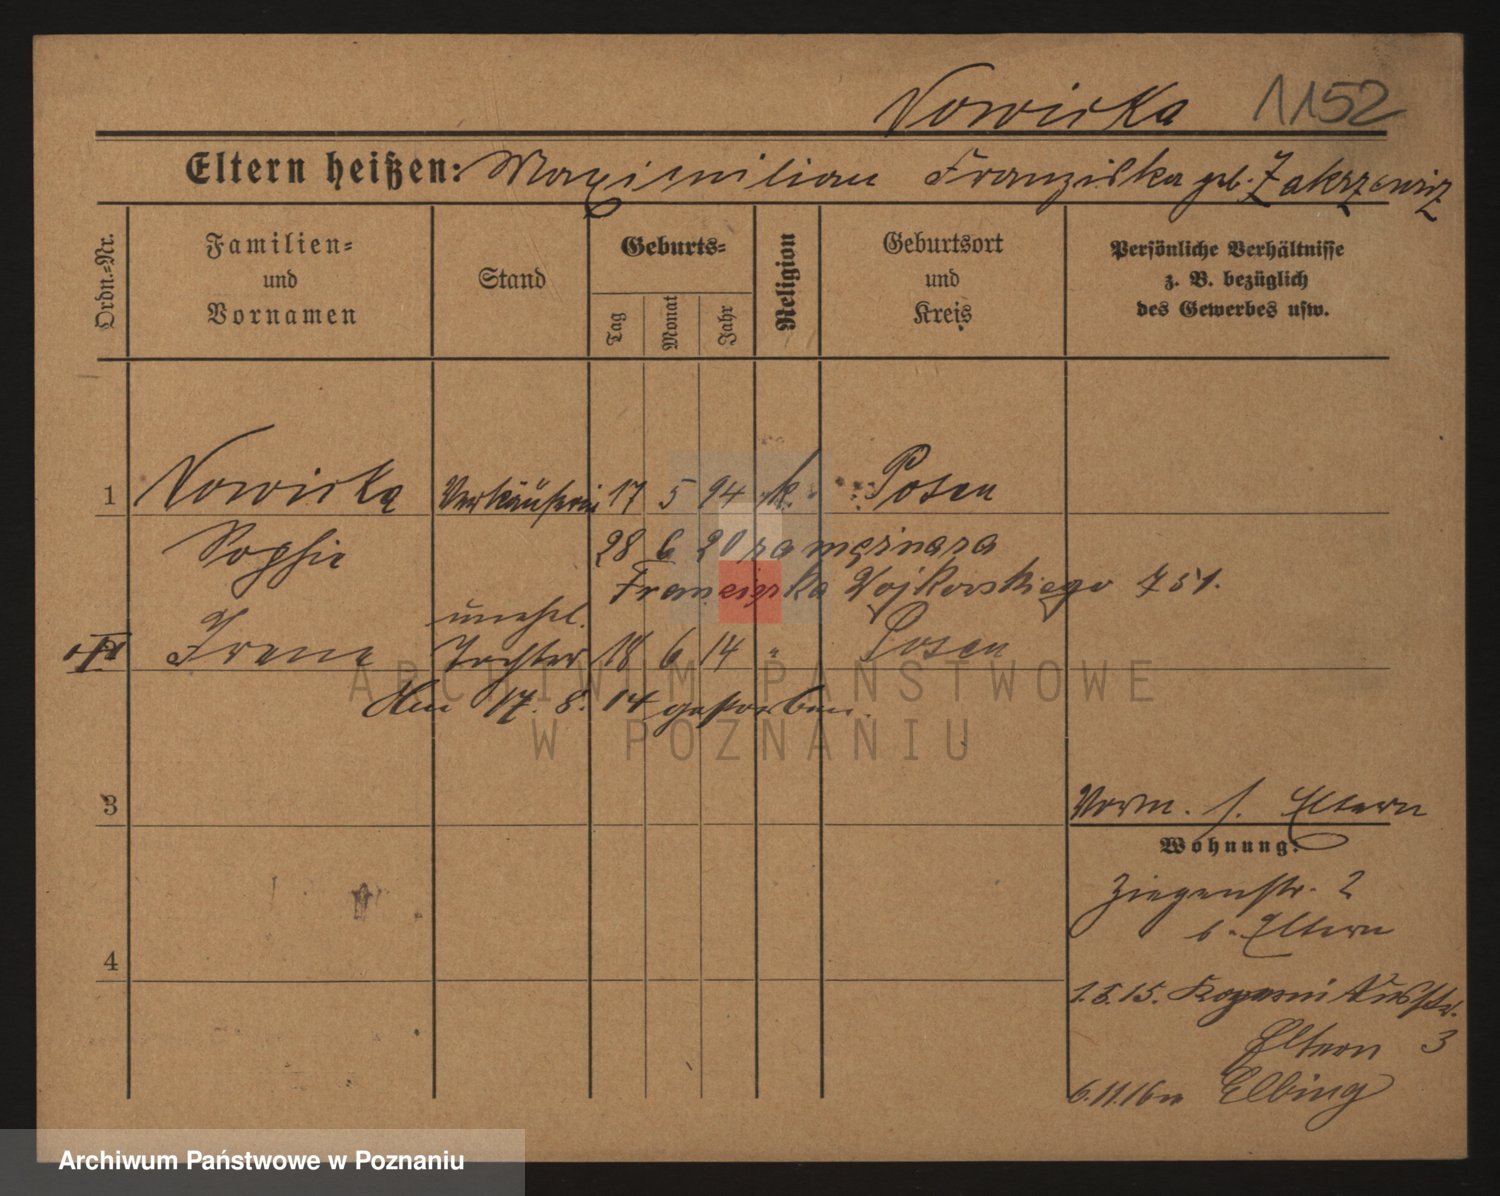 Nowicka 1152
Eltern heißen: Maximilian Franziska geb. Zakrzewicz
Ordn.=Nr.
Familien=
und
Vornamen
Stand
Geburts=
Tag
Monat
Jahr
Religion
Geburtsort
und
Kreis
Persönliche Verhältnisse
z. B. bezüglich
des Gewerbes usw.
1 Nowicka Verkäuferin 17 5 94 k. Posen
Sophie 28 6 20 zamężna za
Franciszka Wojkowskiego 751.
unehl.
Irene Tochter 18 6 14 " Posen
Am 17. 8. 14 gestorben.
3
Vorm. s. Eltern
Wohnung:
Ziegenstr. 2
b. Eltern
4
1.5.15.
Eltern 3
6.11.16 n Elbing
ARCHIWUM PAŃSTWOWE
W POZNANIU
Archiwum Państwowe w Poznaniu